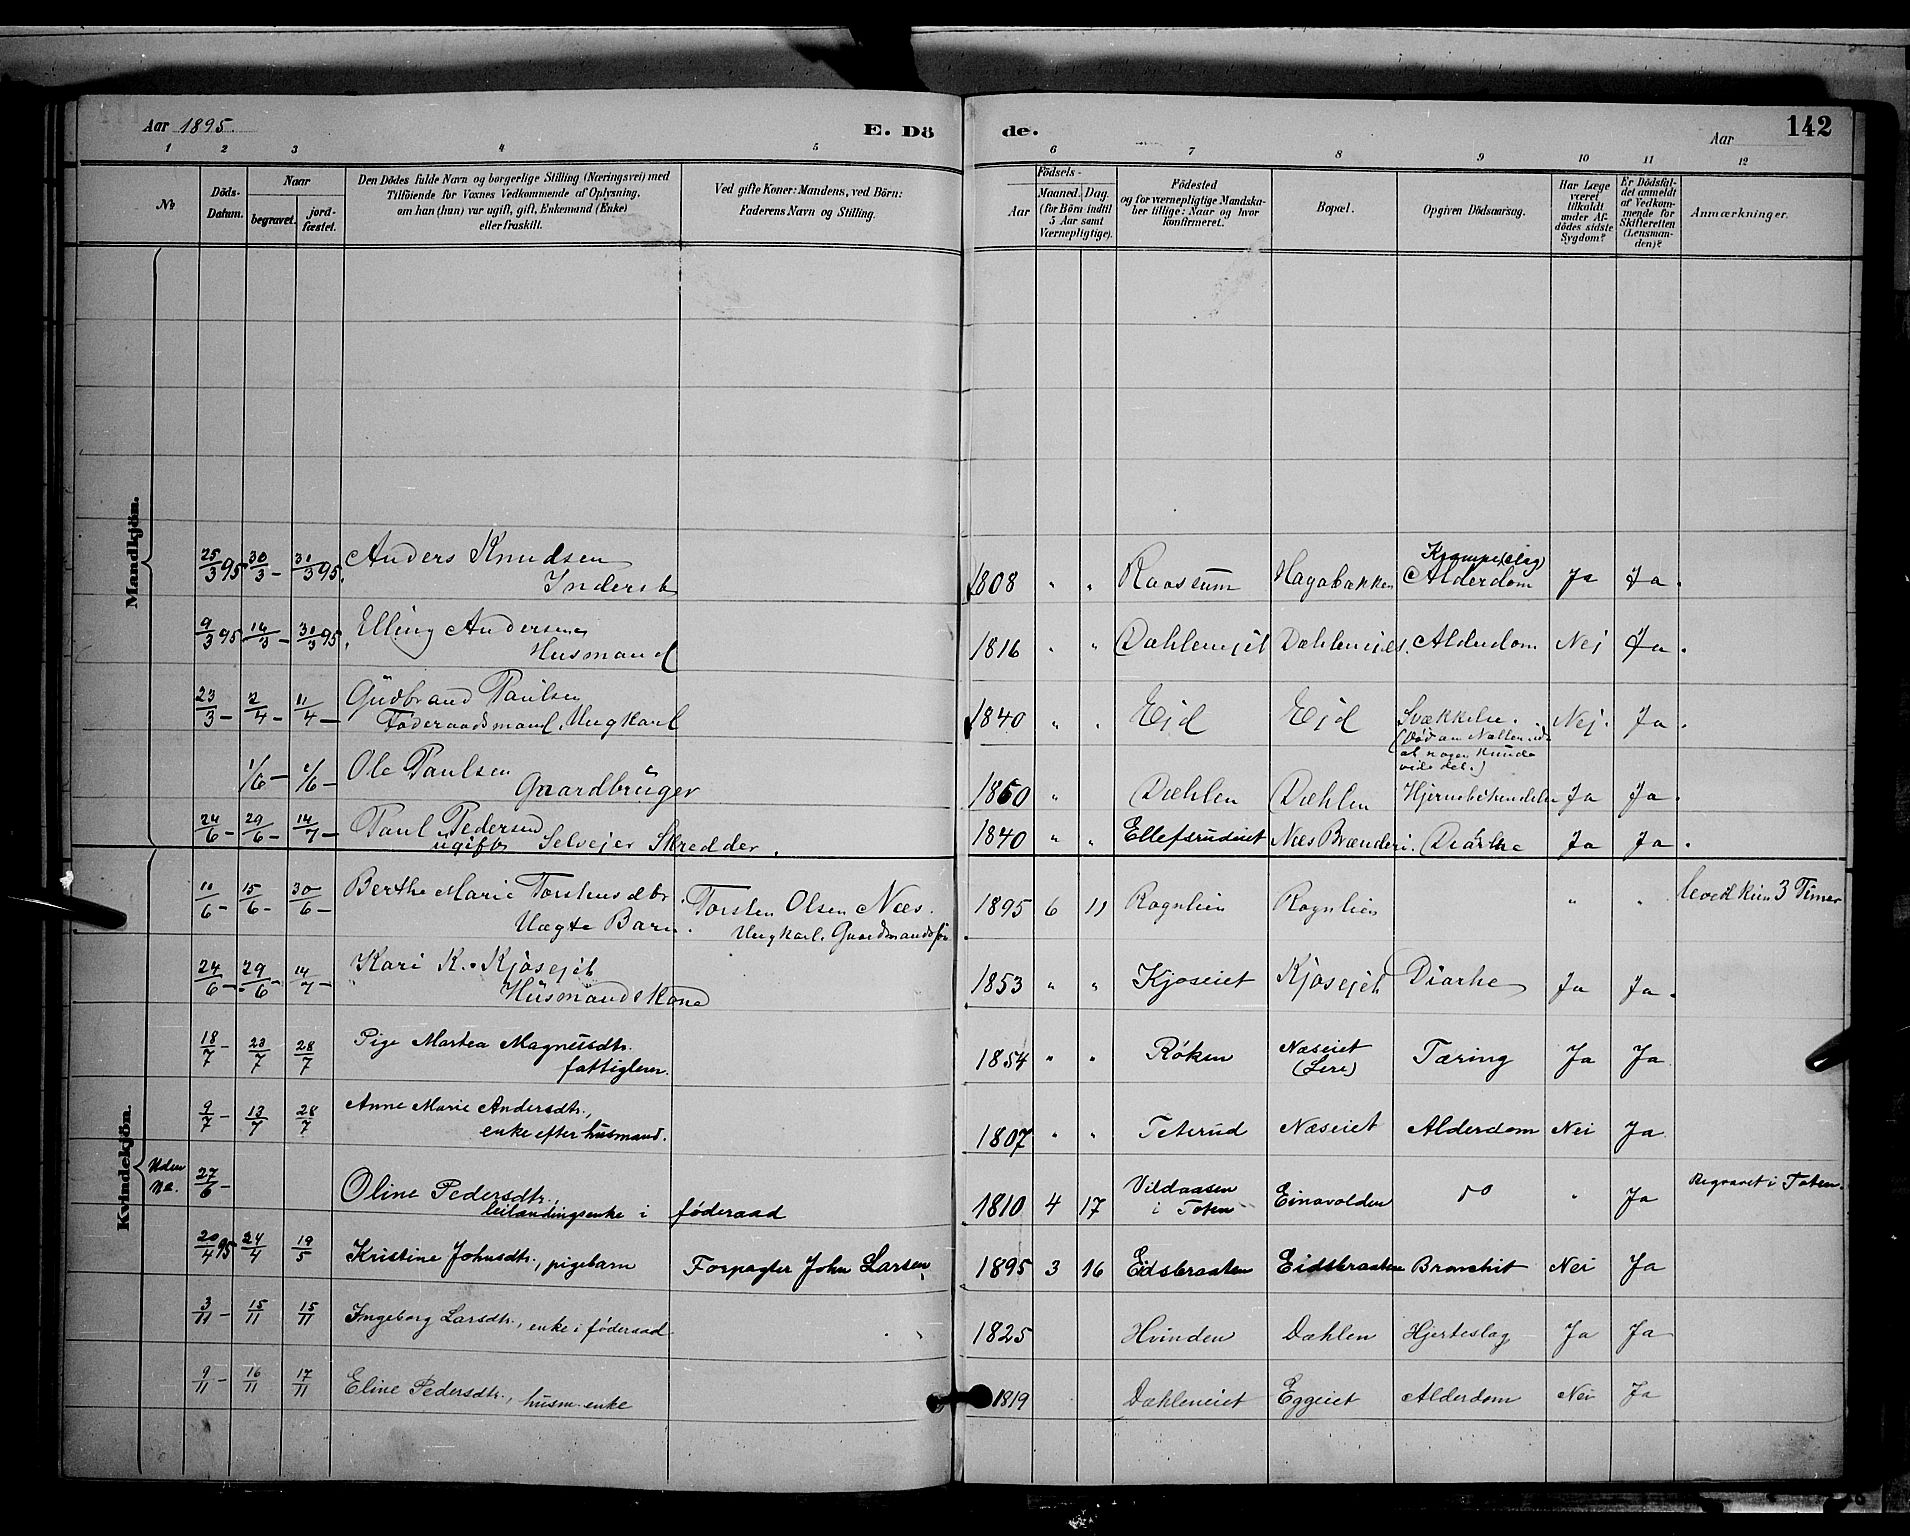 Aar 1895.
E. Dö de.
Aar
142
1 2 3 4 5 6 7 8 9 10 11 12
№
Döds-Datum.
Naar
begravet.
jord-fæstet.
Den Dödes fulde Navn og borgerlige Stilling (Næringsvei) med
Tilföiende for Voxnes Vedkommende af Oplysning,
om han (hun) var ugift, gift, Enkemand (Enke)
eller fraskilt.
Ved gifte Koner: Mandens, ved Börn:
Faderens Navn og Stilling.
Födsels-
Aar
Maaned. Dag.
(for Börn indtil
5 Aar samt
Værnepligtige).
Födested
og for værnepligtige Mandska-
ber tillige: Naar og hvor
konfirmeret.
Bopæl.
Opgiven Dödsaarsag.
Har Læge
været
tilkaldt
under Af-
dödes sidste
Sygdom?
Er Dödsfal-
det anmeldt
af Vedkom-
mende for
Skifteretten
(Lensman-
den)?
Anmærkninger.
Mandkjön.
25/3 95 30/3 - 31/3 95. Anders Knudsen
Inderst
1808 " " Raassum Hagabakken Krampe(slag) Alderdom Ja Ja.
9/3 95 16/3 - 31/3 95. Elling Andersen
Husmand
1816 " " Dæhlenejet Dæhlenejet. Alderdom Nej Ja.
23/3 - 2/4 - 11/4 - Gudbrand Paulsen
Føderaadsmand, Ungkarl
1840 " " Ejd Ejd Svækkelse. Nej. Ja.
(Død om Natten uden
at nogen kunde
vide det.)
1/6 - 2/6 - Ole Paulsen
Gaardbruger
1860 " Dæhlen Dæhlen Ja Ja.
24/6 - 29/6 - 14/7 - Paul Pedersen
ugift Selvejer Skredder.
1840 " " Ellefsrudeiet Næs Brænderi. Diarhe Ja Ja.
Kvindekjön.
11/6 - 15/6 - 30/6 - Berthe Marie Torstensdtr.
Uægte Barn.
Torsten Olsen Næs.
Ungkarl. Gaardmandssøn
1895 6 11 Rognlien Rognlien " " levede kun 3 Timer
24/6 - 29/6 - 14/7 - Kari K. Kjøsejet
Husmandskone
1853 " " Kjoseiet Kjosejet Diarhe Ja Ja.
18/7 - 23/7 28/7 Pige Martea Magnusdtr.
fattiglem.
1854 " " Røken Næseiet
(Lere)
Tæring Ja Ja
9/7 - 13/7 28/7 Anne Marie Andersdtr.,
enke efter husmand.
1807 " " Teterud Næseiet Alderdom Nei Ja
Uden
No. 27/6 - Oline Pedersdtr.,
leilændingsenke i føderaad
1810 4 17 Vildaasen
i Toten
Einavolden do " Ja Begravet i Toten.
20/4 95 24/4 19/5 Kristine Johnsdtr., pigebarn Forpagter John Larsen
1895 3 16 Eidsbraaten Eidsbraaten Bronchit Nei Ja
3/11 - 15/11 15/11 Ingeborg Larsdtr., enke i føderaad
1825 Hvinden Dæhlen Hjerteslag Ja Ja
9/11 - 16/11 17/11 Eline Pedersdtr., husm. enke
1819 Dæhleneiet Eggeiet Alderdom Nei Ja